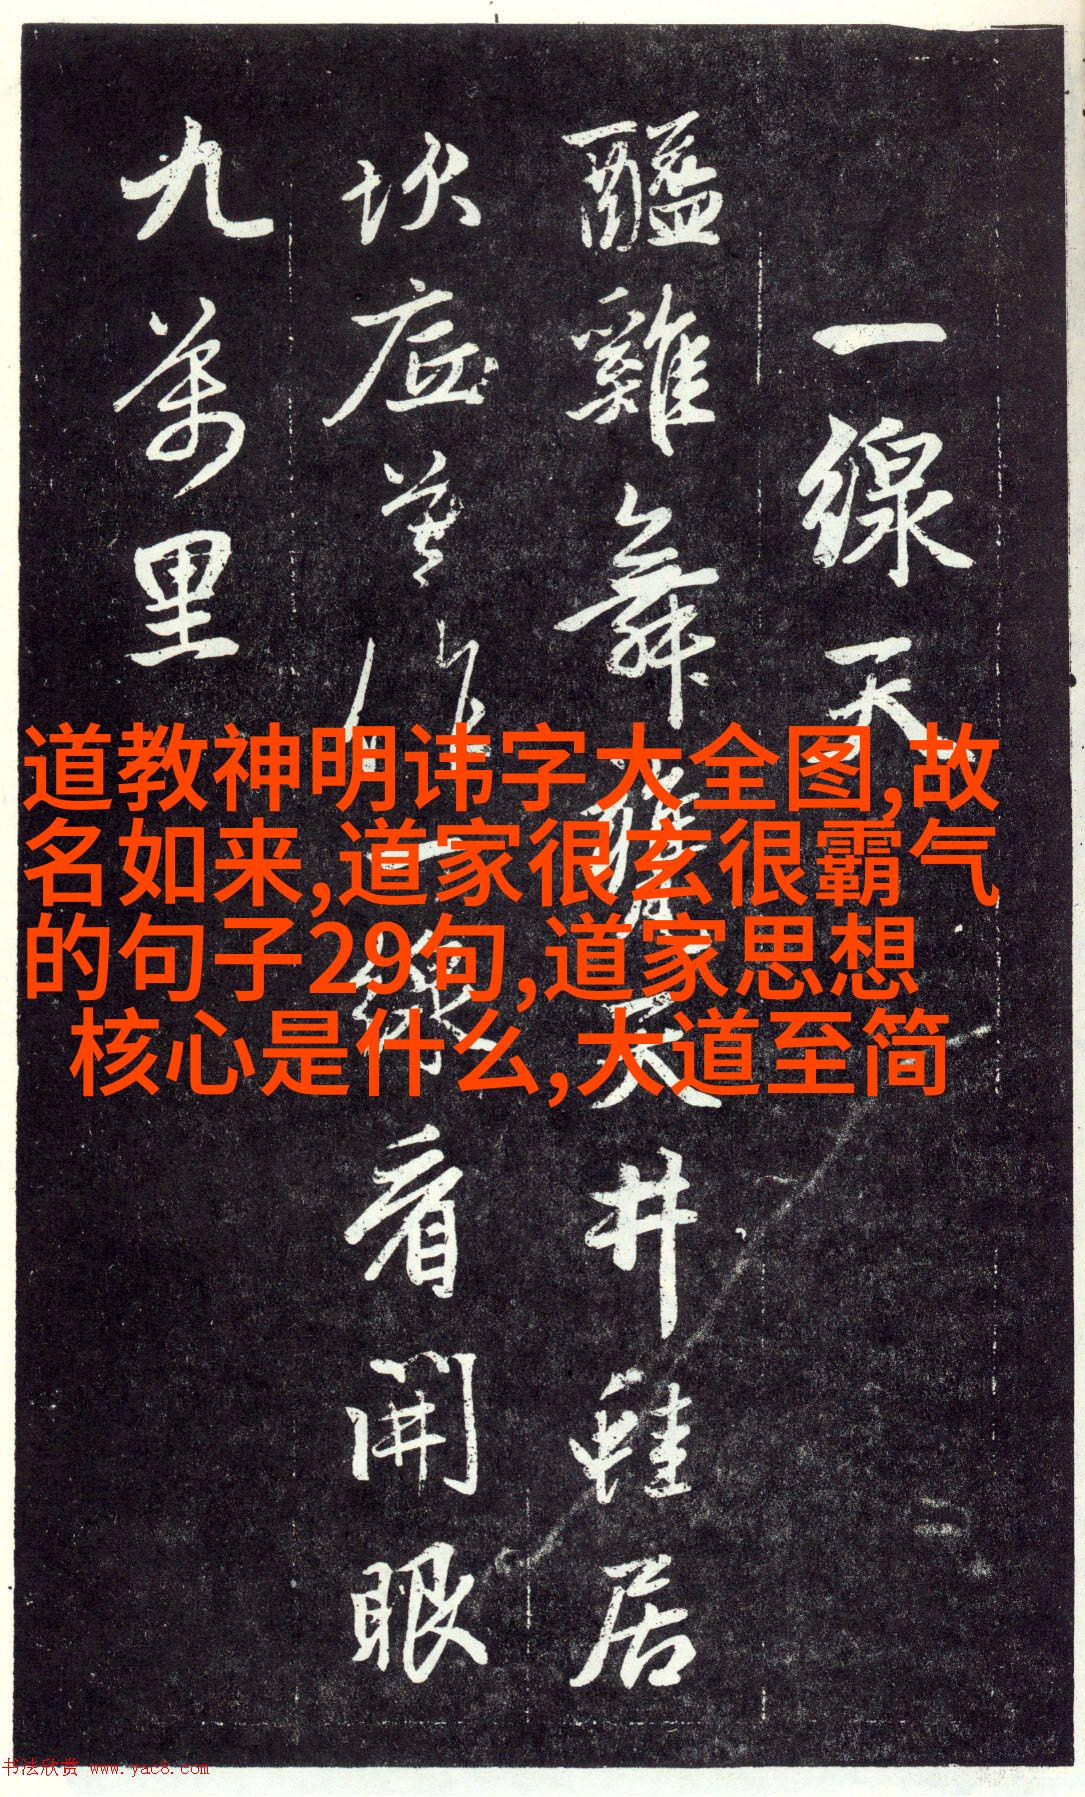 一線天
醯雞舞甕天井蛙居
坎底莫作一線看開眼
九萬里
道教神明讳字大全图,故
名如来,道家很玄很霸气
的句子29句,道家思想
核心是什么,大道至简
书法欣赏 www.yac8.com